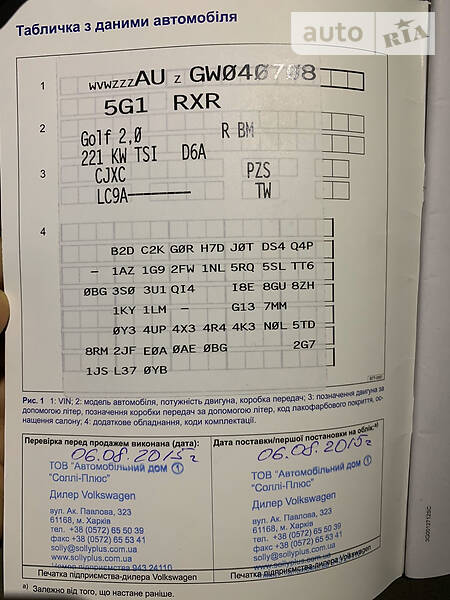 Табличка з даними автомобіля
auto RIA
1 WVWZZZ AU Z GW040708
5G1 RXR
2 Golf 2,0 R BM
221 KW TSI D6A
3 CJXC PZS
LC9A TW
4
B2D C2K G0R H7D J0T DS4 Q4P
– 1AZ 1G9 2FW 1NL 5RQ 5SL TT6
0BG 3S0 3U1 QI4 I8E 8GU 8ZH
1KY 1LM – G13 7MM
0Y3 4UP 4X3 4R4 4K3 N0L 5TD
8RM 2JF E0A 0AE 0BG 2G7
1JS L37 0YB
Рис. 1 1: VIN; 2: модель автомобіля, потужність двигуна, коробка передач; 3: позначення двигуна за
допомогою літер, позначення коробки передач за допомогою літер, код лакофарбового покриття, ос-
нащення салону; 4: додаткове обладнання, коди комплектації.
Перевірка перед продажем виконана (дата):
06.08.2015г
ТОВ "Автомобільний дім 1
"Соллі-Плюс"
Дилер Volkswagen
вул. Ак. Павлова, 323
61168, м. Харків
тел. +38 (0572) 65 50 39
факс +38 (0572) 65 53 41
solly@sollyplus.com.ua
www.sollyplus.com.ua
Печатка підприємства-дилера Volkswagen
Дата поставки/першої постановки на облік:а)
06.08.2015г
ТОВ "Автомобільний дім 1
"Соллі-Плюс"
Дилер Volkswagen
вул. Ак. Павлова, 323
61168, м. Харків
тел. +38 (0572) 65 50 39
факс +38 (0572) 65 53 41
solly@sollyplus.com.ua
www.sollyplus.com.ua
Печатка підприємства-дилера Volkswagen
а) Залежно від того, що настане раніше.